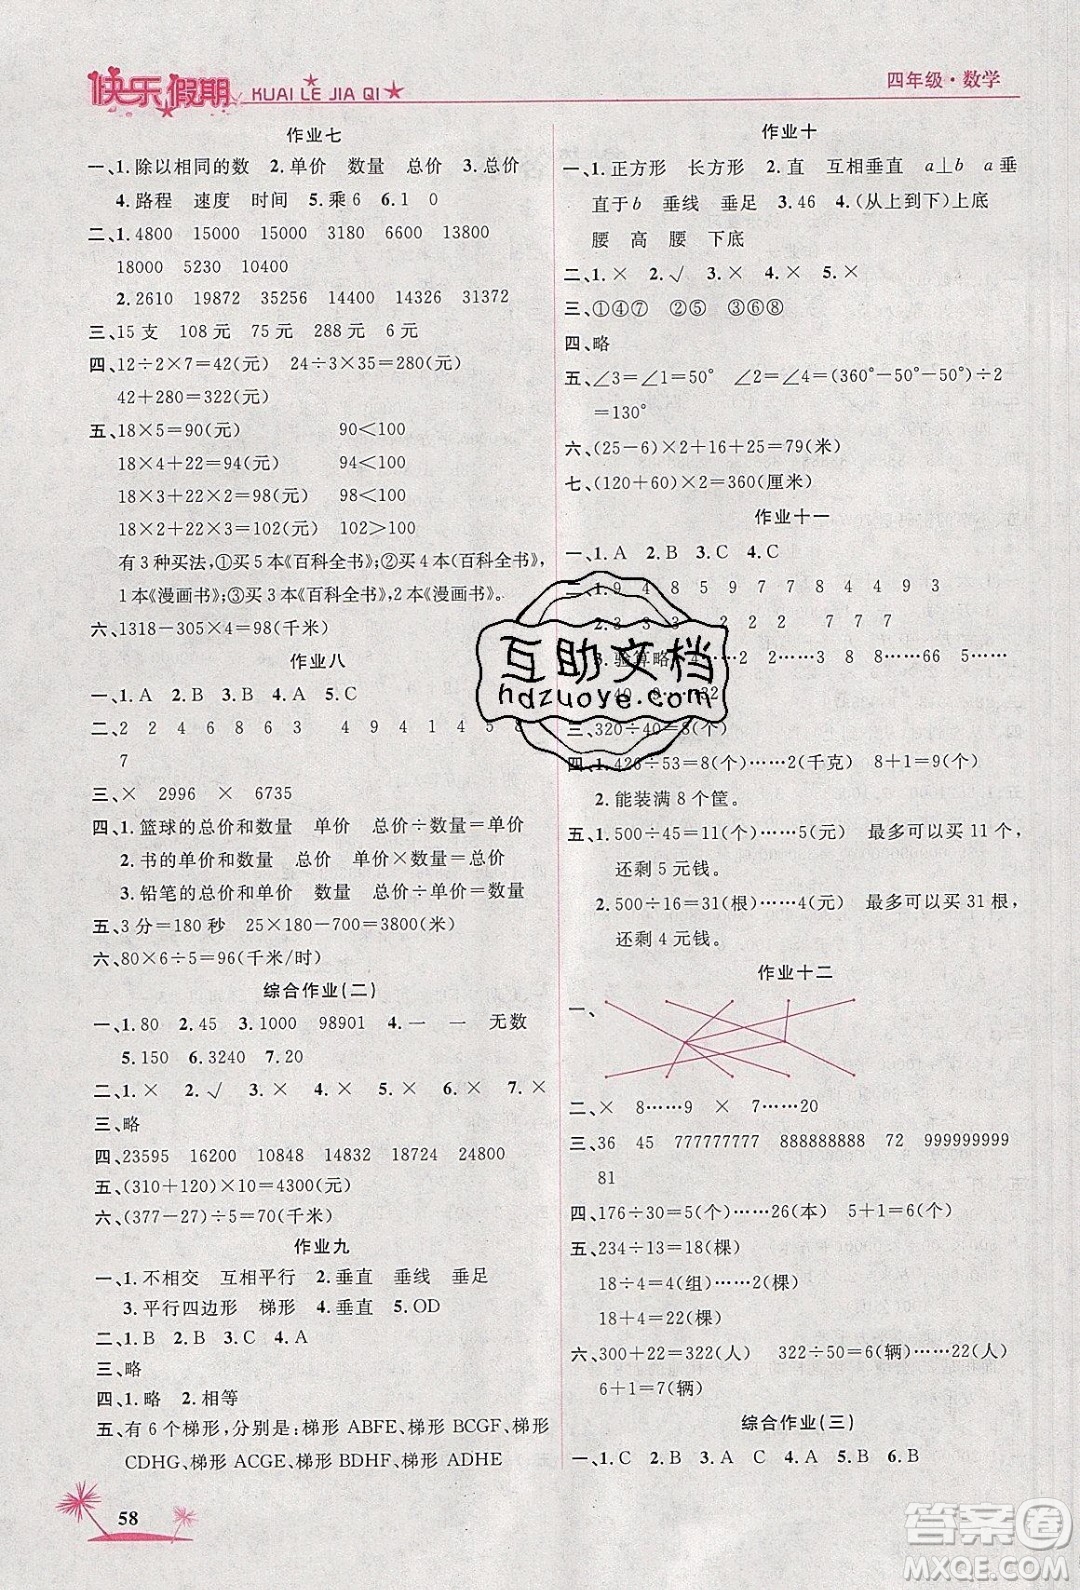 快乐假期 KUAI LE JIA QI
四年级·数学
作业七
一、1.除以相同的数 2.单价 数量 总价 3.总价
4.路程 速度 时间 5.乘6 6.1 0
二、1.4800 15000 15000 3180 6600 13800
18000 5230 10400
2.2610 19872 35256 14310 14326 31372
三、15支 108元 75元 288元 6元
四、12÷2×7=42(元) 24÷3×35=280(元)
42+280=322(元)
五、18×5=90(元) 90<100
18×4+22=94(元) 94<100
18×3+22×2=98(元) 98<100
18×2+22×3=102(元) 102>100
有3种买法,①买5本《百科全书》;②买4本《百科全书》,
1本《漫画书》;③买3本《百科全书》,2本《漫画书》。
六、1318-305×4=98(千米)
作业八
一、1.A 2.B 3.B 4.A 5.C
二、2 2 4 6 8 6 3 4 9 4 1 4 5 8
7
三、× 2996 × 6735
四、1.篮球的总价和数量 单价 总价÷数量=单价
2.书的单价和数量 总价 单价×数量=总价
3.铅笔的总价和单价 数量 总价÷单价=数量
五、3分=180秒 25×180-700=3800(米)
六、80×6÷5=96(千米/时)
综合作业(二)
一、1.80 2.45 3.1000 98901 4.一 一 无数
5.150 6.3240 7.20
二、1.× 2.√ 3.× 4.× 5.× 6.× 7.×
三、略
四、23595 16200 10848 14352 18724 24800
五、(310+120)×10=4300(元)
六、(377-27)÷5=70(千米)
作业九
一、1.不相交 互相平行 2.垂直 垂线 垂足
3.平行四边形 梯形 4.垂直 5.OD
二、1.B 2.B 3.C 4.A
三、略
四、1.略 2.相等
五、有6个梯形,分别是:梯形ABFE,梯形BCGF,梯形
CDHG,梯形ACGE,梯形BDHF,梯形ADHE
58
作业十
一、1.正方形 长方形 2.直 互相垂直 a⊥b a垂
直于b 垂线 垂足 3.46 4.(从上到下)上底
腰 高 腰 下底
二、1.× 2.√ 3.× 4.× 5.×
三、①④⑦ ②⑤ ③⑥⑧
四、略
五、∠3=∠1=50° ∠2=∠4=(360°-50°-50°)÷2
=130°
六、(25-6)×2+16+25=79(米)
七、(120+60)×2=360(厘米)
作业十一
一、1.A 2.B 3.C 4.C
二、1.9 4 8 5 9 7 9 4 9 3
2. 3 3 3 2 2 2 7 7 7
3.验算略 4……2 2……3 8 8……66 5……
40 9……32
三、320÷40=8(个)
四、1.426÷53=8(个)……2(千克) 8+1=9(个)
2.能装满8个筐。
五、1.500÷45=11(个)……5(元) 最多可以买11个,
还剩5元钱。
2.500÷16=31(根)……4(元) 最多可以买31根,
还剩4元钱。
作业十二
一、
二、× 8……9 × 7……20
三、36 45 777777777 888888888 72 999999999
81
四、176÷30=5(个)……26(本) 5+1=6(个)
五、234÷13=18(棵)
18÷4=4(组)……2(棵)
18+4=22(棵)
六、300+22=322(人) 322÷50=6(辆)……22(人)
6+1=7(辆)
综合作业(三)
一、1.C 2.A 3.B 4.A 5.C 6.B
互助文档
hdzuoye.com
答案圈
MXQE.COM